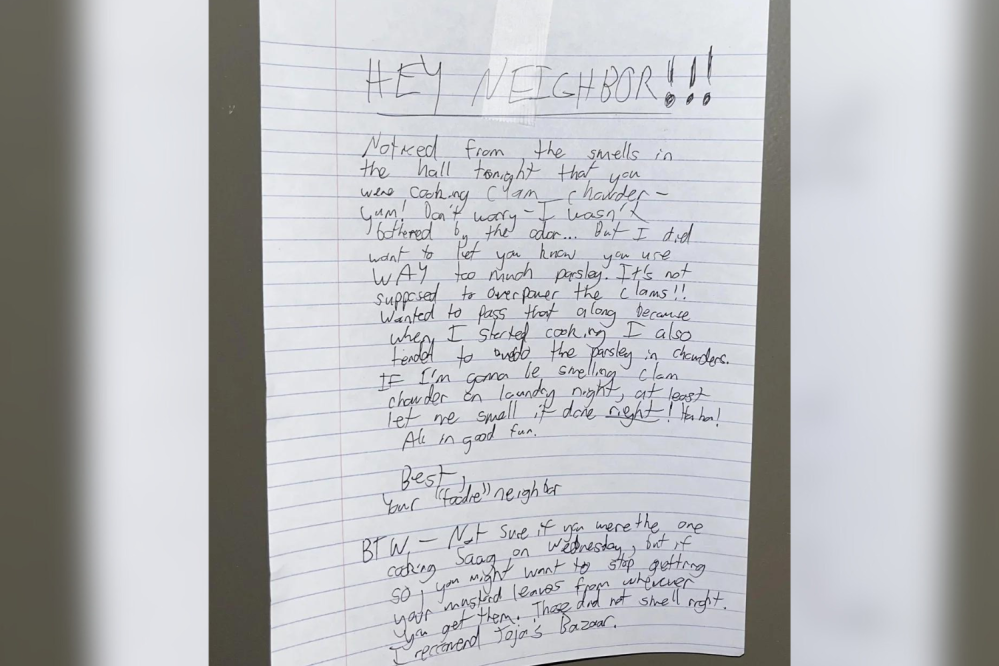 HEY NEIGHBOR!!!
Noticed from the smells in
the hall tonight that you
were cooking clam chowder -
yum! Don't worry - I wasn't
bothered by the odor... But I did
want to let you know you use
WAY too much parsley. It's not
supposed to overpower the clams!!
Wanted to pass that along because
when I started cooking I also
tended to overdo the parsley in chowders.
IF I'm gonna be smelling clam
chowder on laundry night, at least
let me smell it done right! Ha ha!
All in good fun.
Best,
Your "foodie" neighbor
BTW, - Not sure if you were the one
cooking Saag on Wednesday, but if
so, you might want to stop getting
your mustard leaves from wherever
you get them. Those did not smell right.
I reccomend Joja's Bazaar.